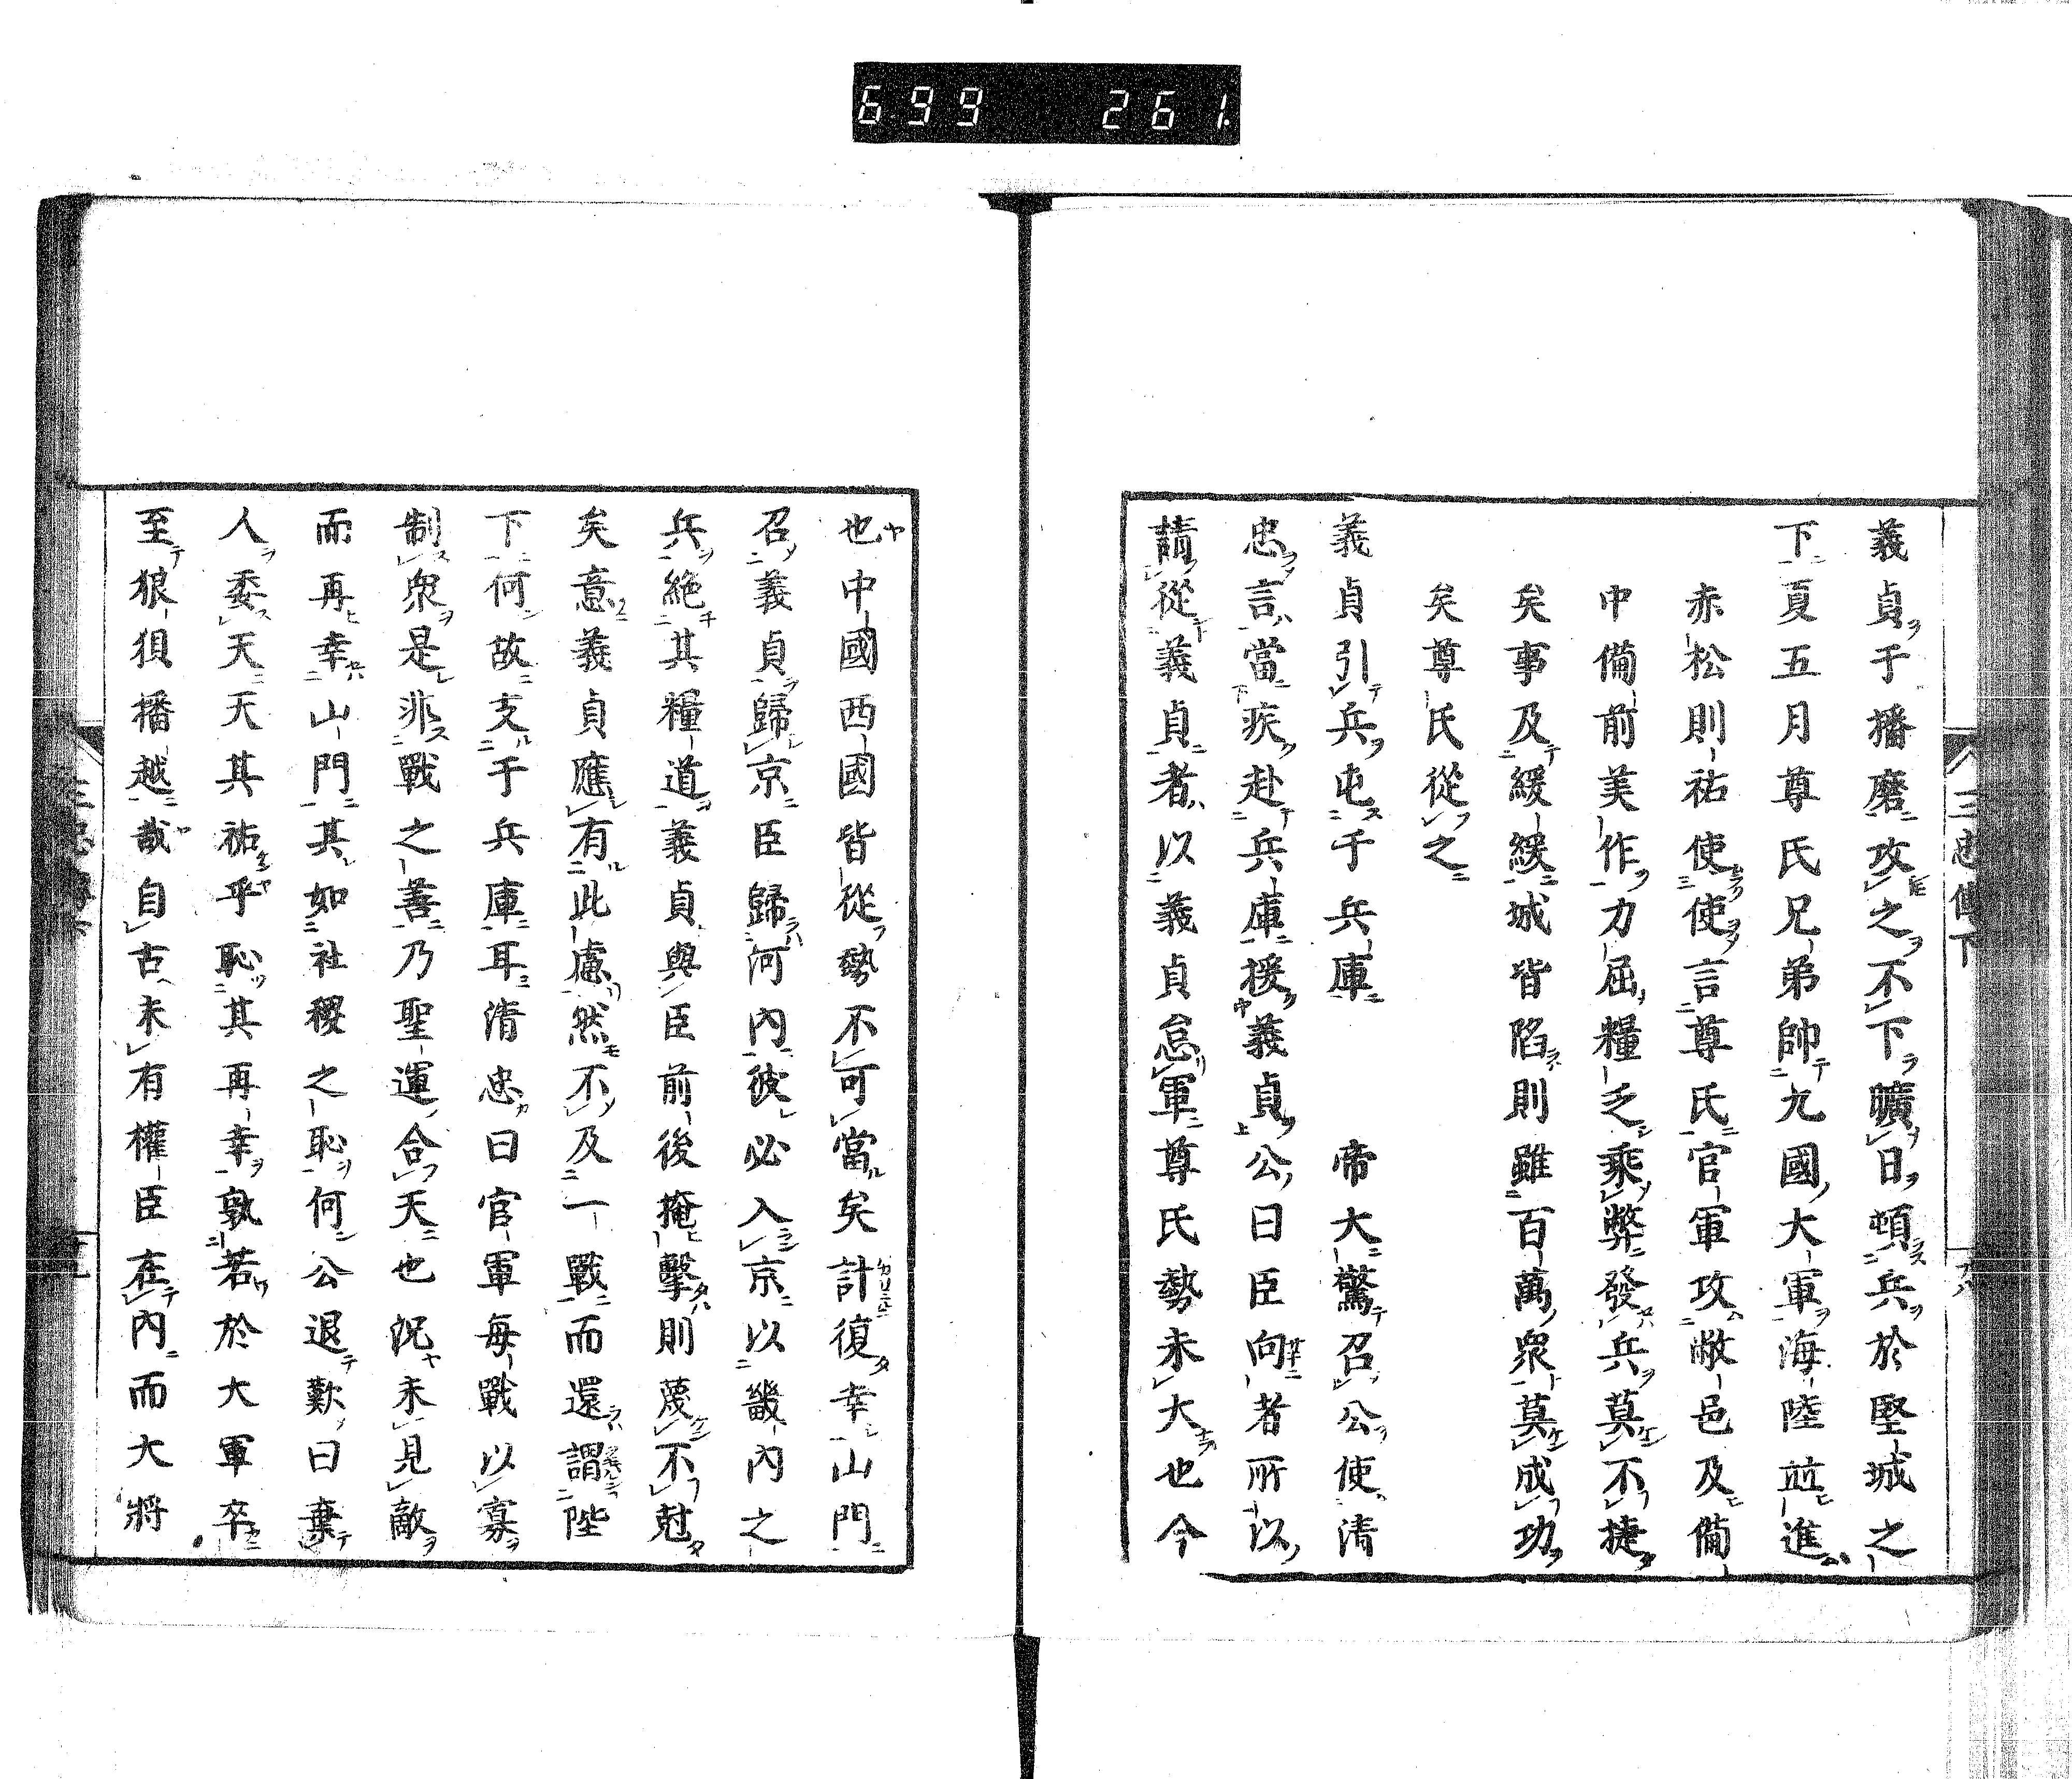 699 261
三忠傳下
義貞于播磨攻之不下曠日頓兵於堅城之
下夏五月尊氏兄弟帥九國大軍海陸並進
赤松則祐使使言尊氏官軍攻敝邑及備
中備前美作力屈糧乏乘弊發兵莫不捷
矣事及緩緩城皆陷則雖百萬衆莫成功
矣尊氏從之
義貞引兵屯于兵庫 帝大驚召公使清
忠言當疾赴兵庫援義貞公曰臣向者所以
請從義貞者以義貞怠軍尊氏勢未大也今
也中國西國皆從勢不可當矣計復幸山門
召義貞歸京臣歸河內彼必入京以畿內之
兵絶其糧道義貞與臣前後掩擊則蔑不尅
矣意義貞應有此慮然不及一戰而還謂陛
下何故支于兵庫耳清忠曰官軍每戰以寡
制衆是非戰之善乃聖運合天也況未見敵
而再幸山門其如社稷之恥何公退歎曰棄
人委天天其祐乎恥其再幸孰若於大軍卒
至狼狽播越哉自古未有權臣在內而大將